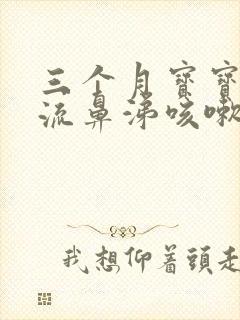 三个月寶寶
流鼻涕咳嗽
我想仰着頭走